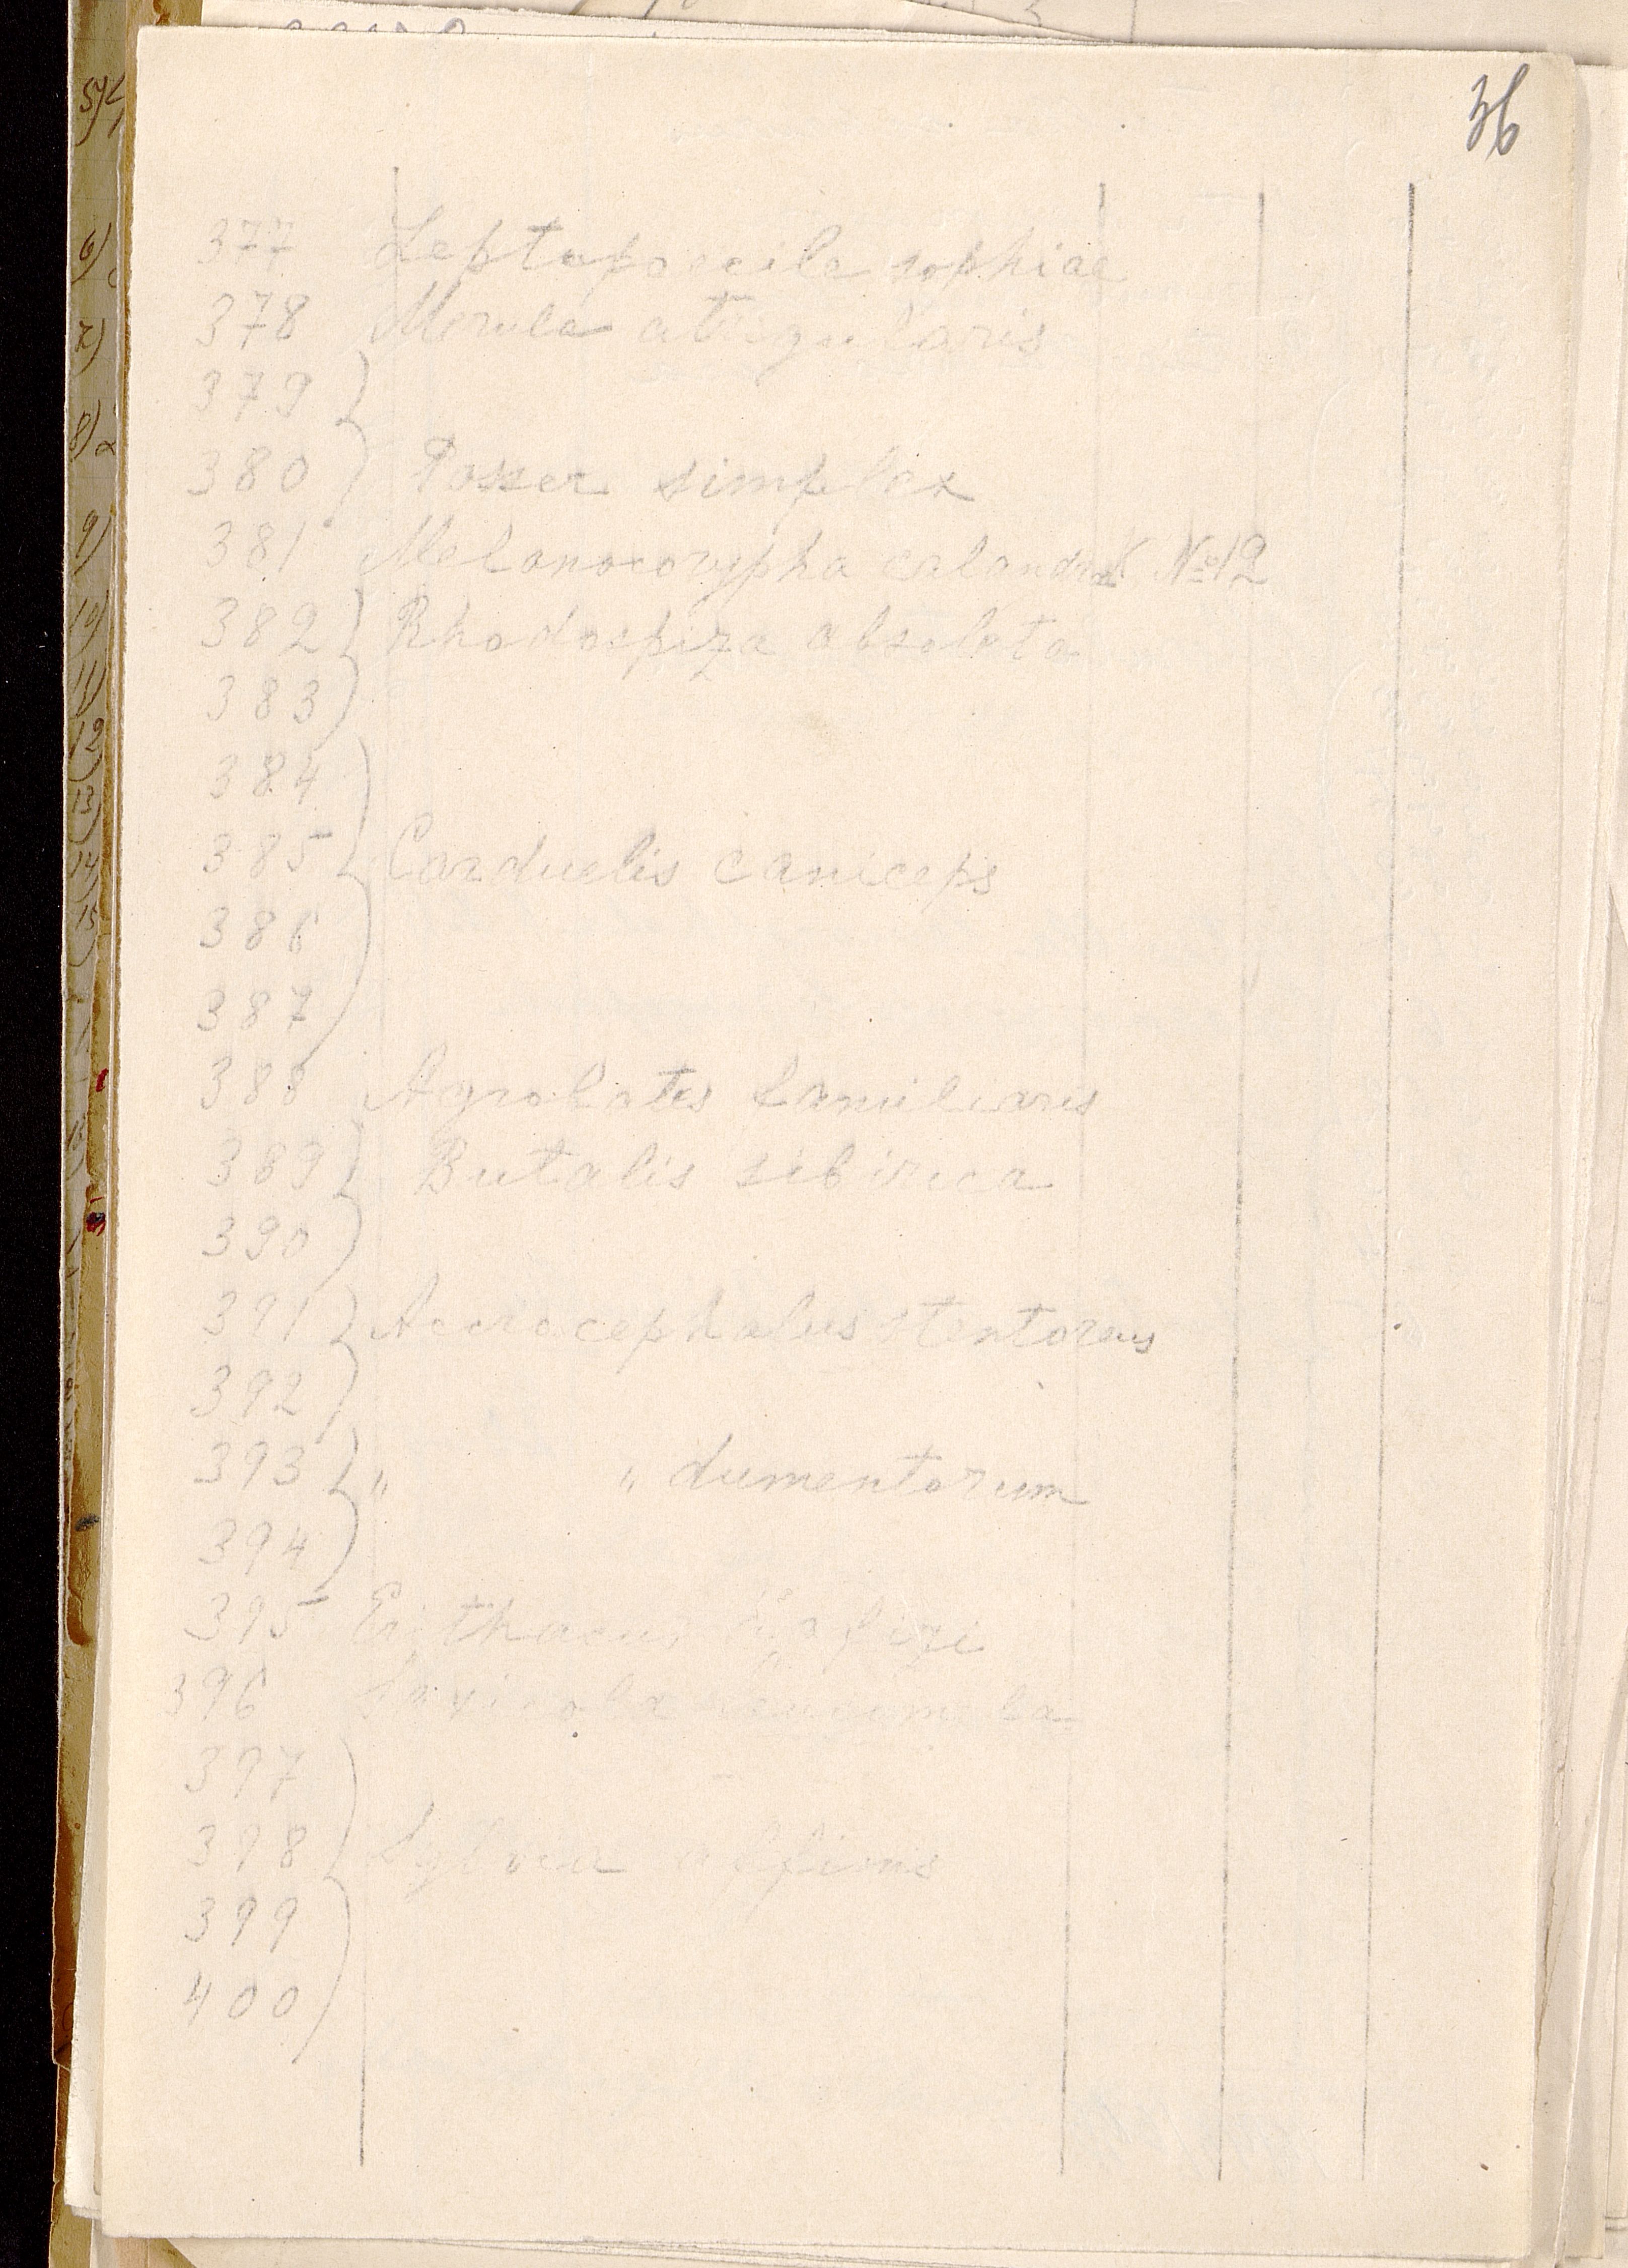 36
377 Leptopoecile sophiae
378 Merula atrigularis
379
380 Passer simplex
381 Melanocorypha calandra К №12
382 Rhodospiza obsoleta
383
384
385 Carduelis caniceps
386
387
388 Agrobates familiaris
389 Butalis sibirica
390
391 Acrocephalus stentoreus
392
393 " " dumentorum
394
395 Erithacus
396 Saxicola
397
398 Sylvia affinis
399
400